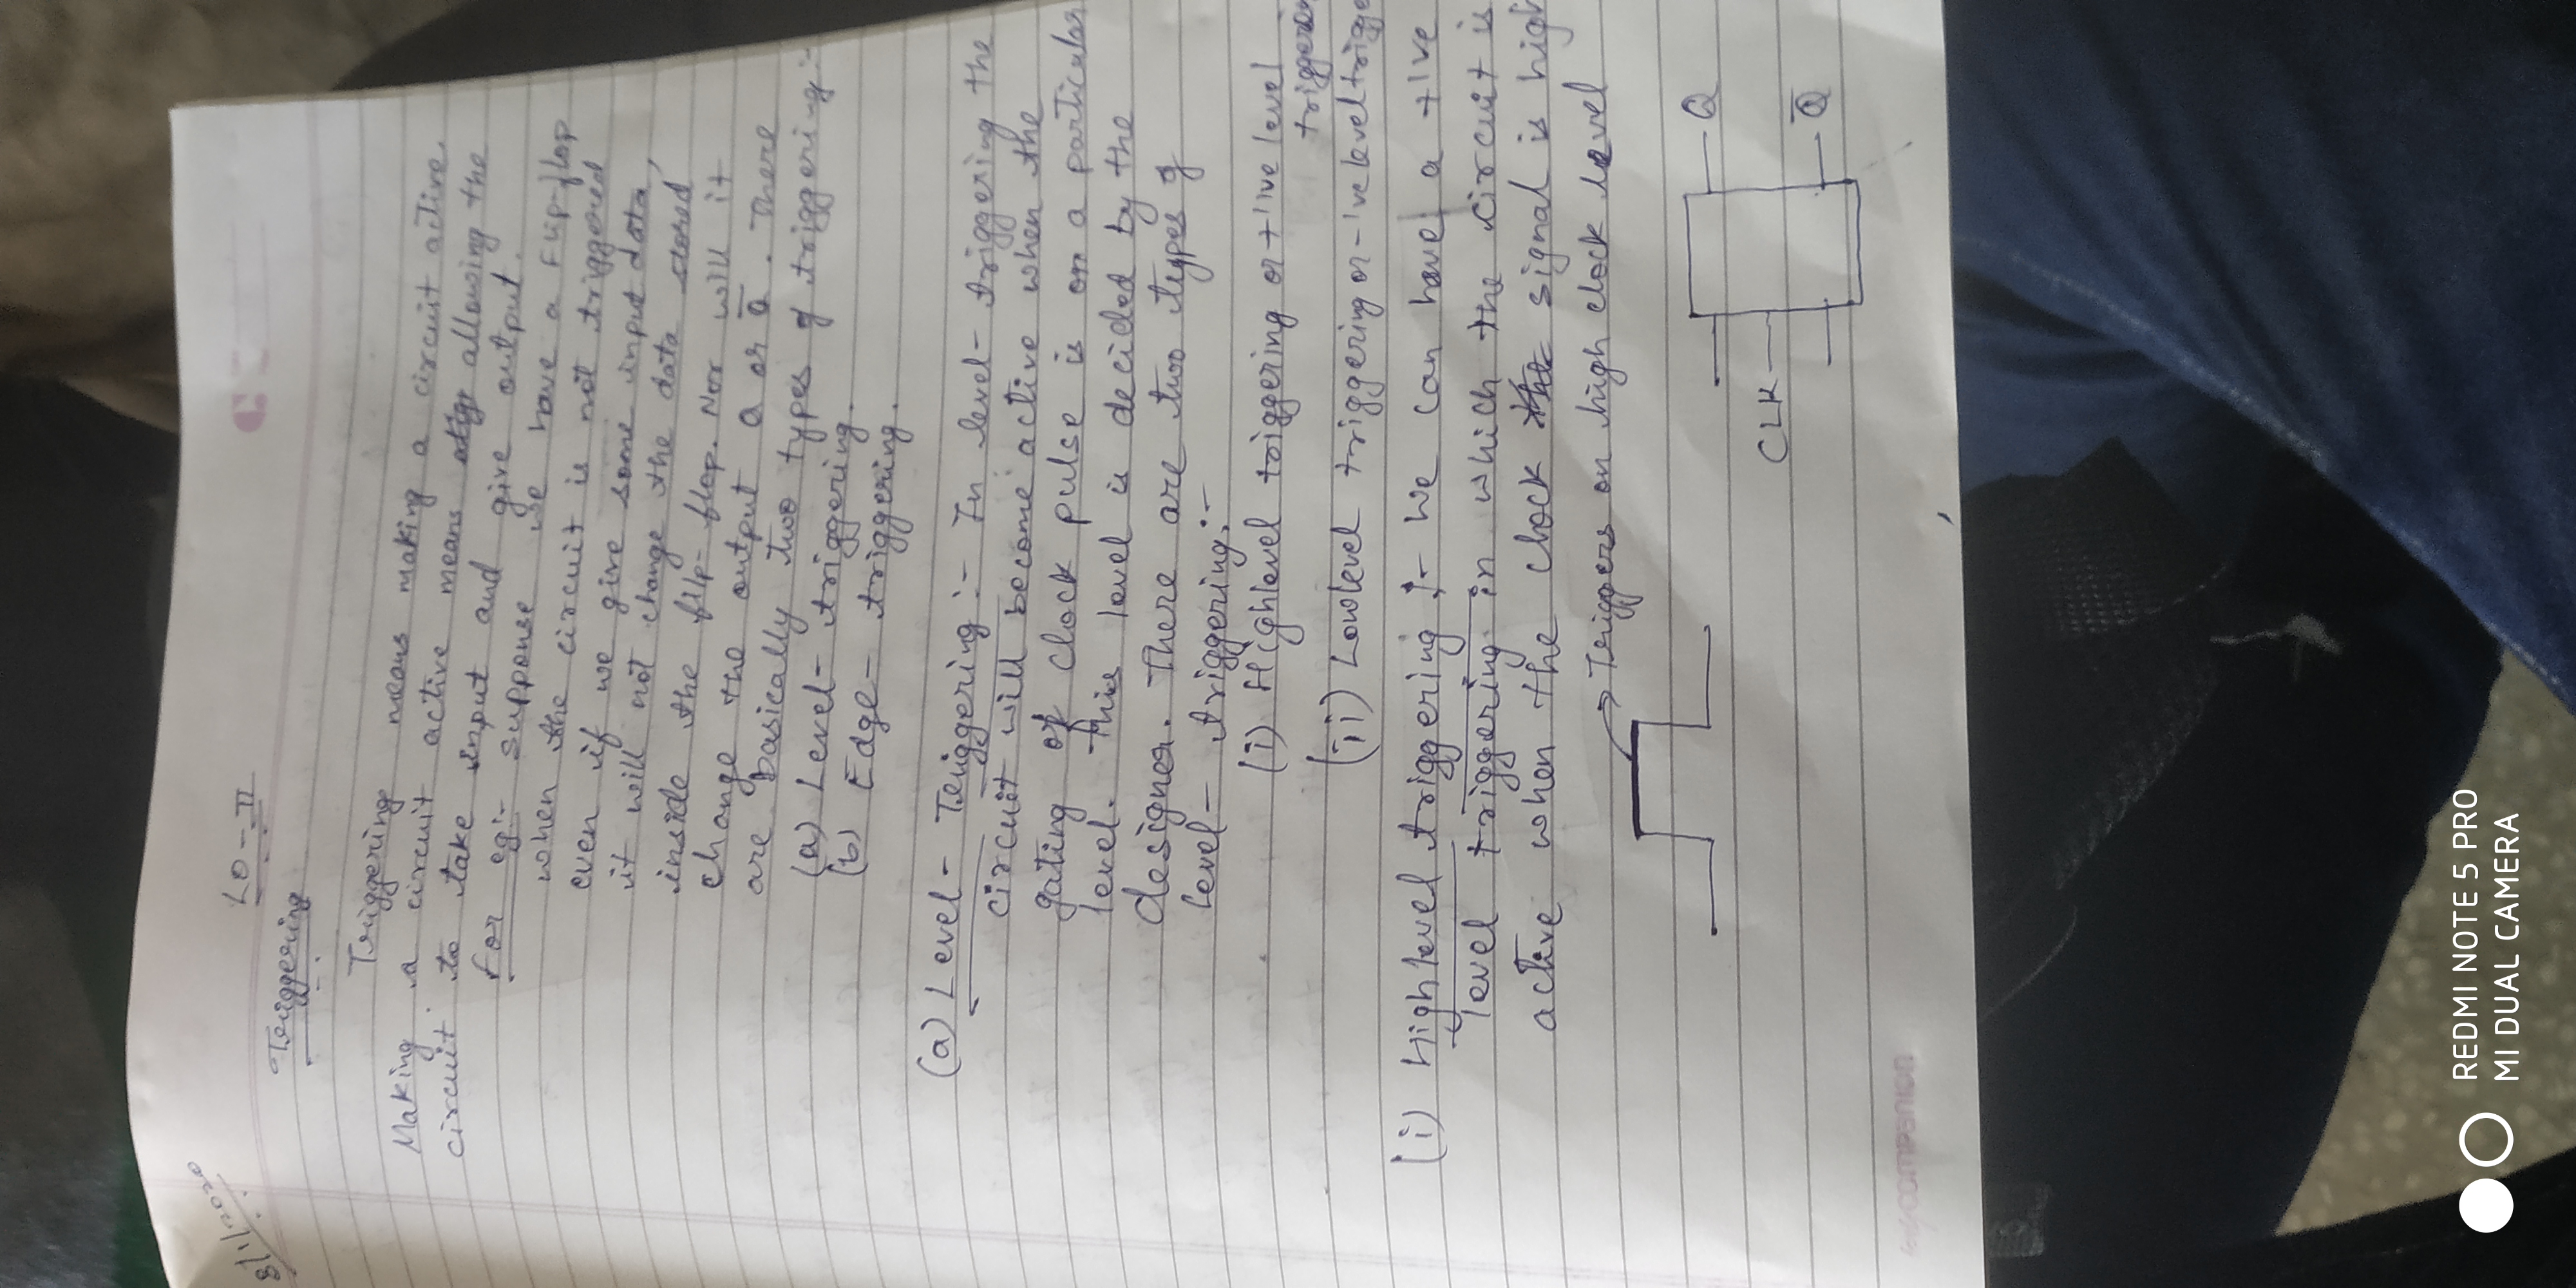 8/1/2020
LO-II
Triggering
Triggering means making a circuit active.
Making a circuit active means allowing the
circuit to take input and give output.
for eg:- supponse we have a flip-flop
when the circuit is not triggered
even if we give some input data,
it will not change the data stored
inside the filp-flop. Nor will it
change the output Q or Q̅. There
are basically two types of triggering:-
(a) Level- triggering.
(b) Edge- triggering.
(a) Level- Teriggering:- In level- triggering the
circuit will become active when the
gating of clock pulse is on a particular
level. This level is decided by the
designer. There are two types of
level- triggering:-
(i) Highlevel triggering or +'ive level
triggerin
(ii) Lowlevel triggering or -'ve level trigge
(i) High level triggering :- We can have a +'ive
level triggering in which the circuit is
active when the clock signal is high
Triggers on high clock level
Q
CLK
Q̅
mycompanion
REDMI NOTE 5 PRO
MI DUAL CAMERA